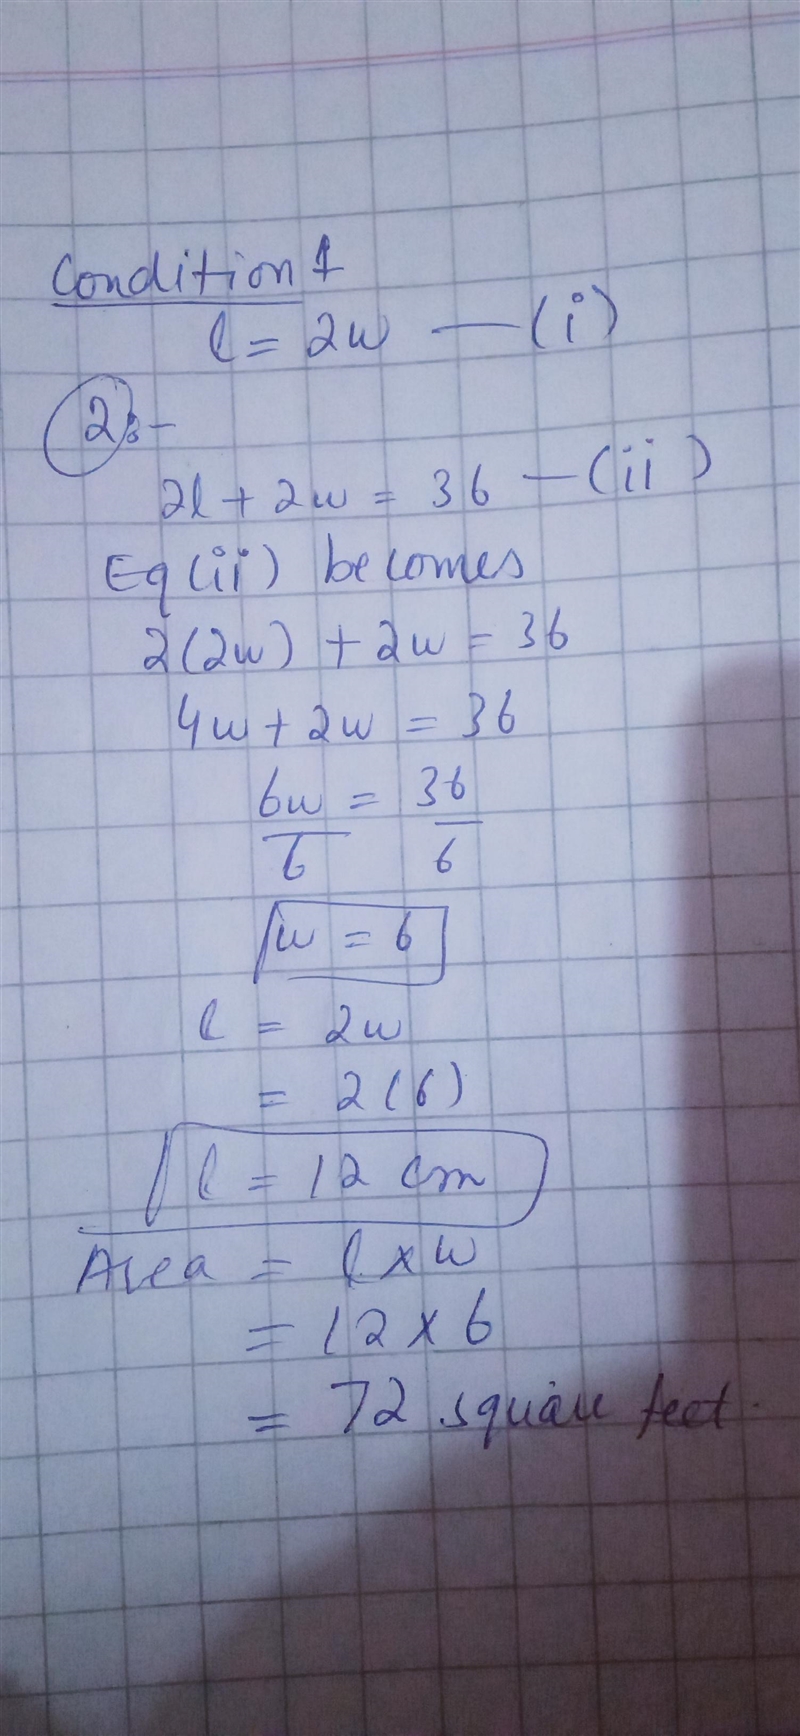 Condition 1
l = 2w — (i)
2:-
2l + 2w = 36 — (ii)
Eq (ii) becomes
2(2w) + 2w = 36
4w + 2w = 36
6w = 36
6 6
w = 6
l = 2w
= 2(6)
l = 12 cm
Area = l × w
= 12 × 6
= 72 square feet.